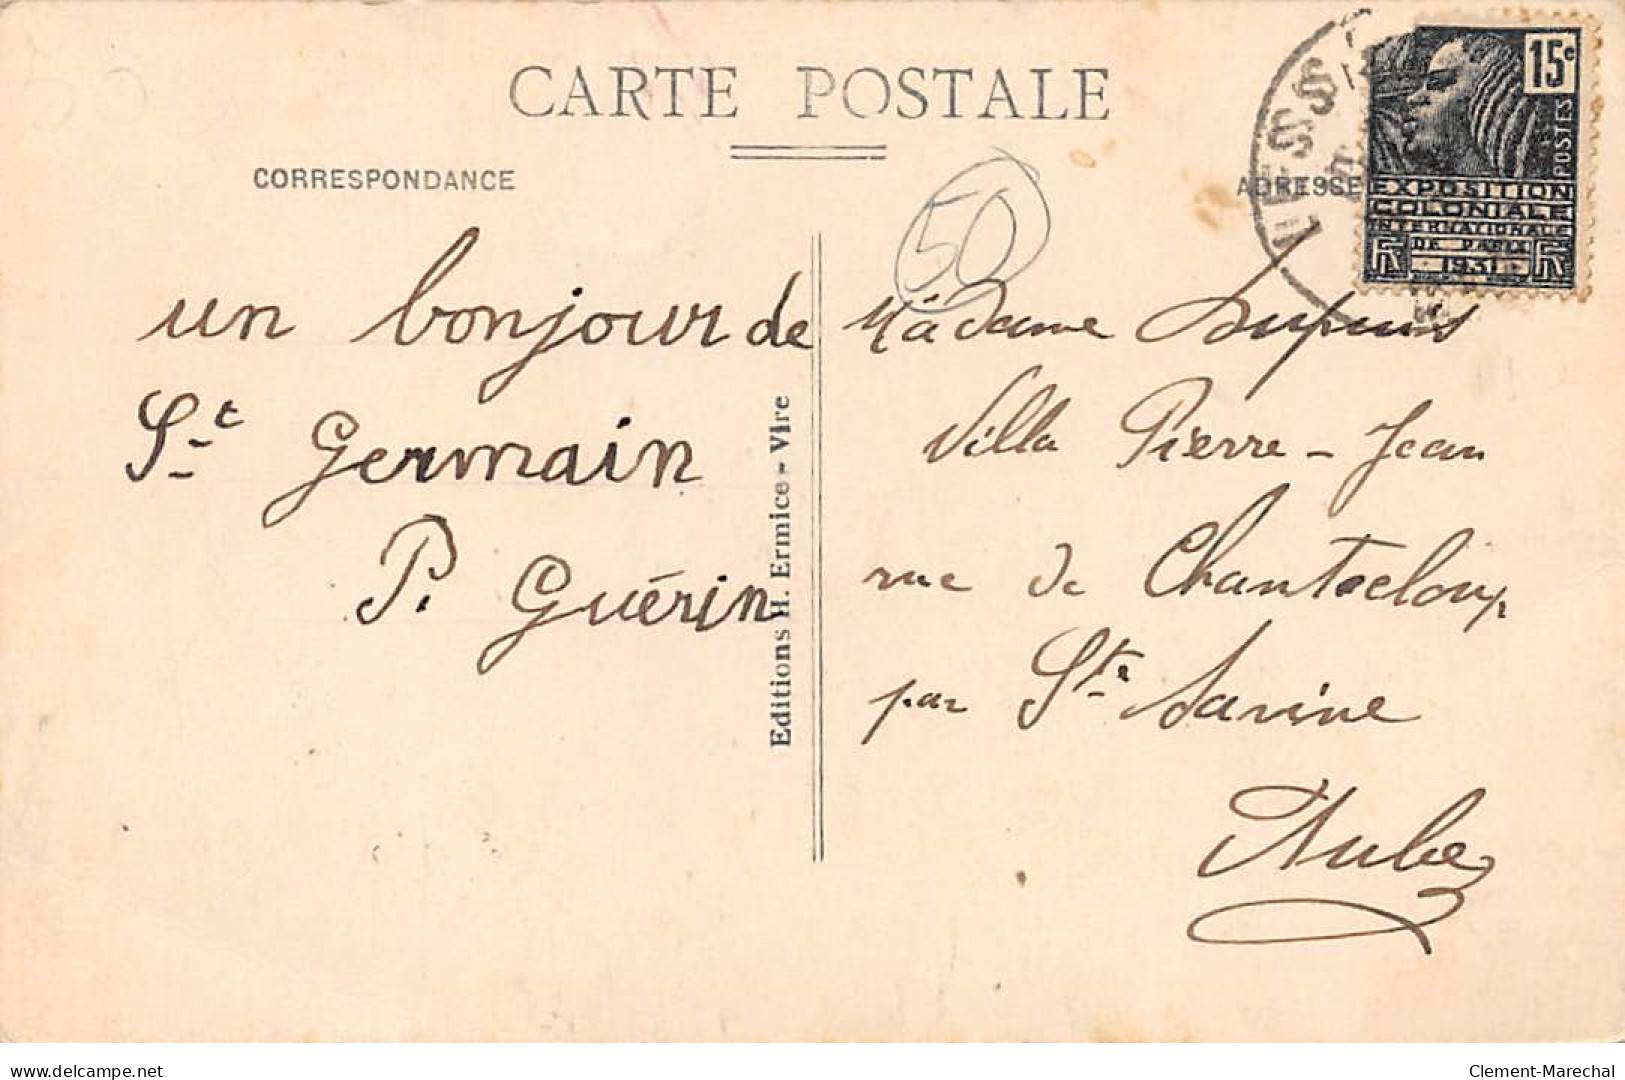 CARTE POSTALE
CORRESPONDANCE
ADRESSE
15c
POSTES
EXPOSITION
COLONIALE
INTERNATIONALE
DE PARIS
1931
50
un bonjour de
St Germain
P. Guérin
Editions H. Ermice - Vire
Madame Dupuis
Villa Pierre-Jean
rue de Chanteloup
par Ste Savine
Aube
delcampe.net
Clement-Marechal